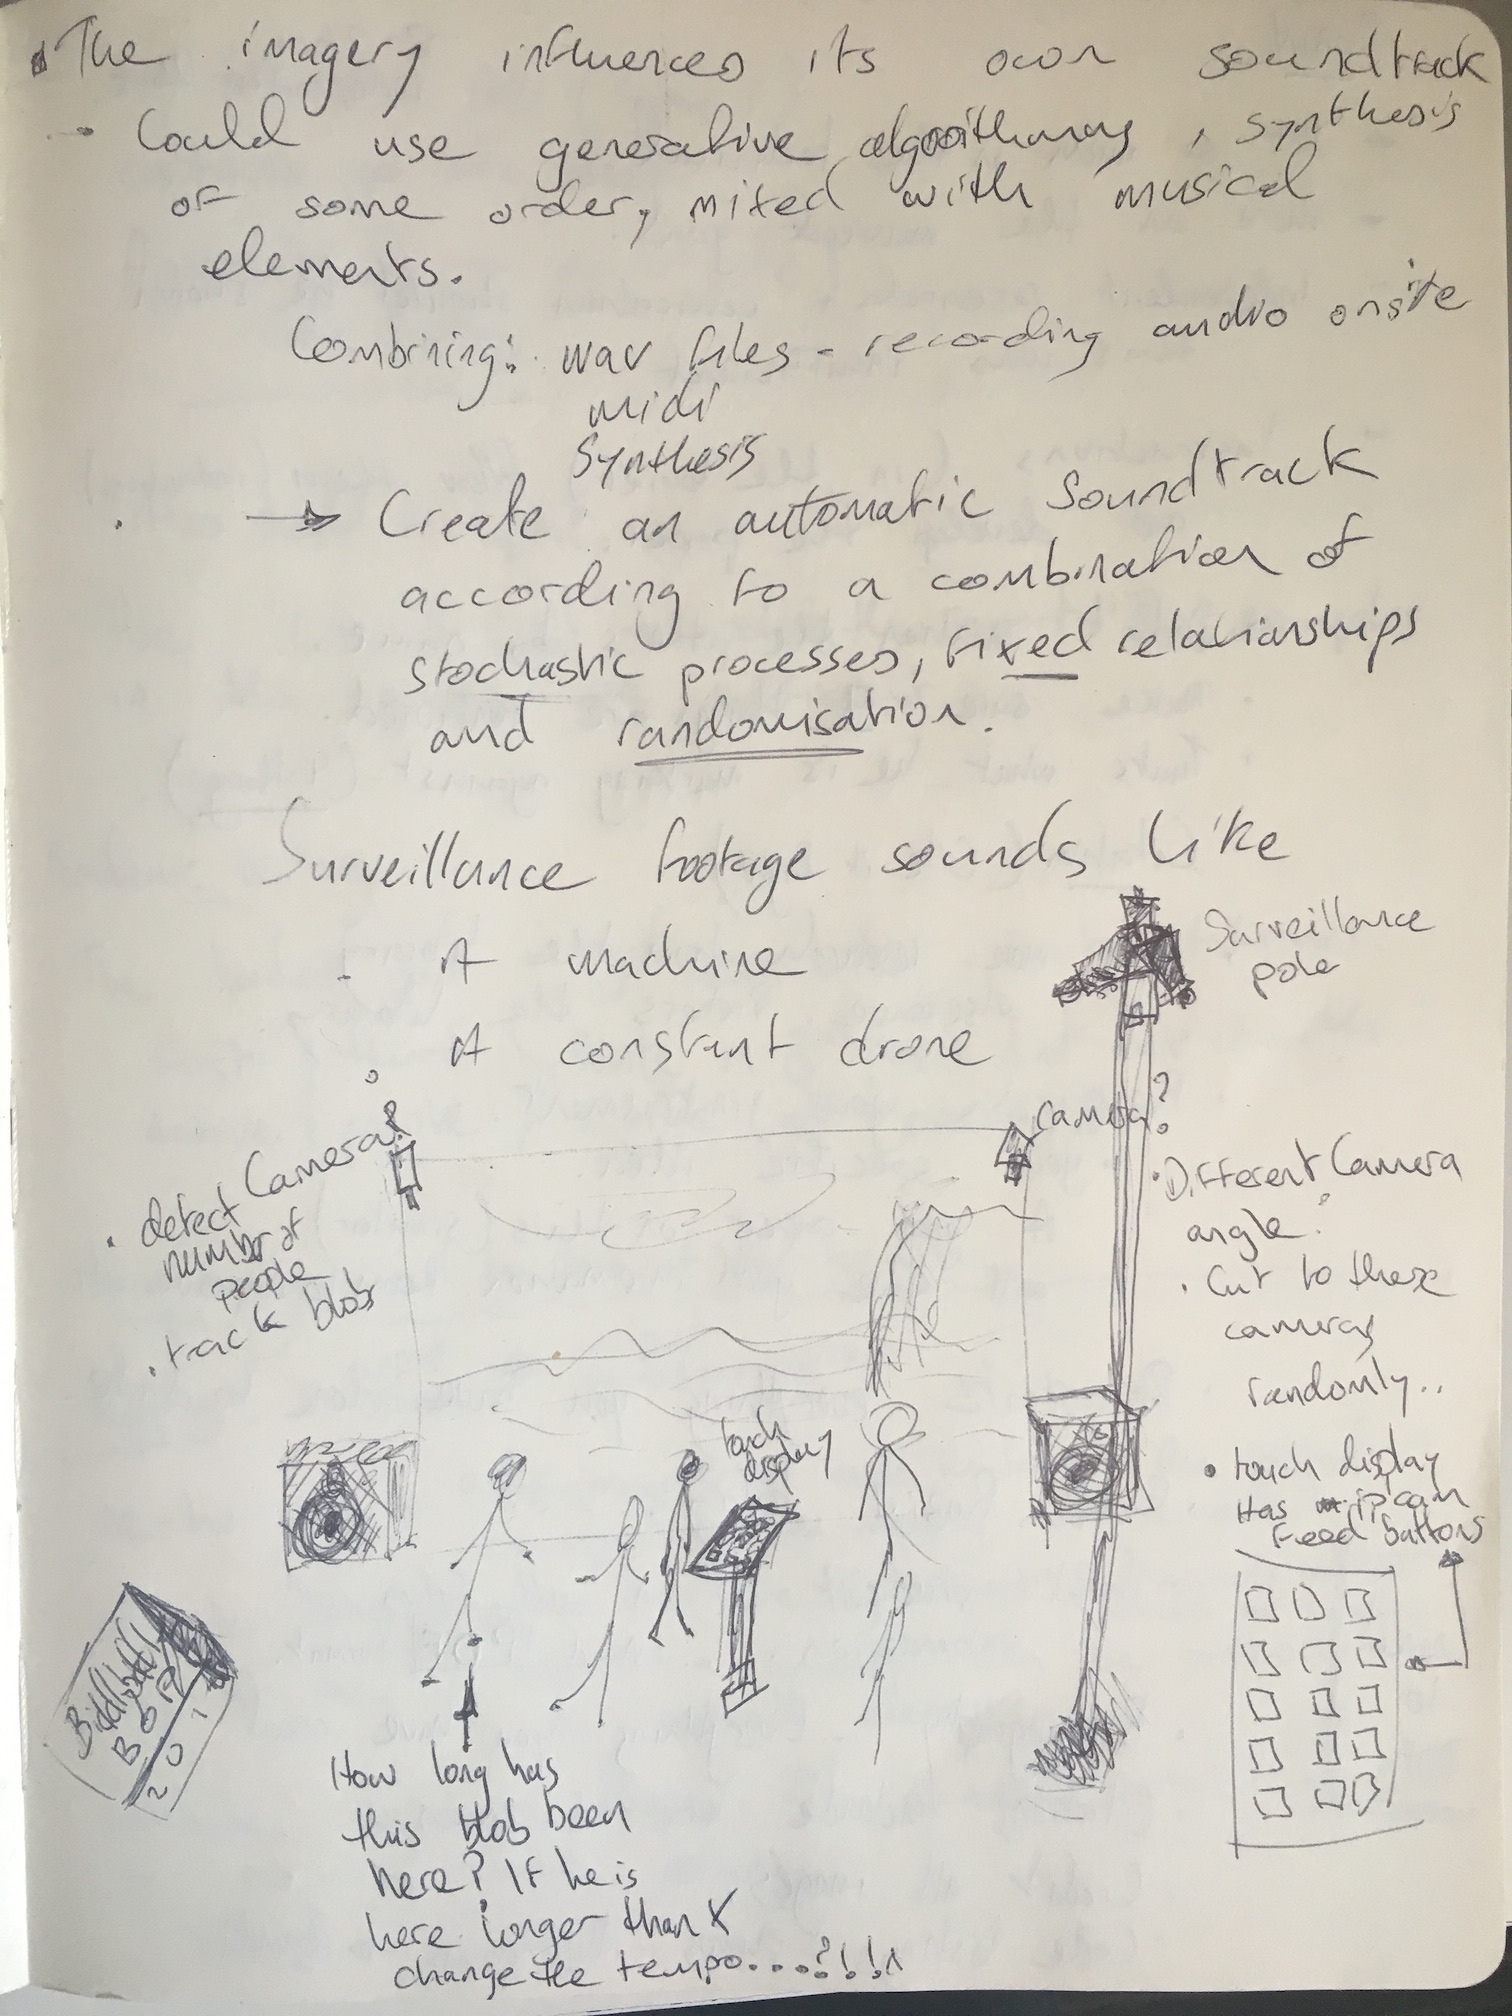 The imagery influences its own soundtrack
- Could use generative algorithms, synthesis
of some order, mixed with musical
elements.
Combining: wav files - recording audio onsite
midi
Synthesis
→ Create an automatic soundtrack
according to a combination of
stochastic processes, fixed relationships
and randomisation.
Surveillance footage sounds like
- A machine
A constant drone
Surveillance
pole
camera?
Camera?
• detect
number of
people
• track blobs
• Different Camera
angle?
• Cut to these
cameras
randomly..
touch
display
• touch display
Has ip cam
Feed buttons
2 0 1
How long has
this blob been
here? If he is
here longer than X
change the tempo....?!!!